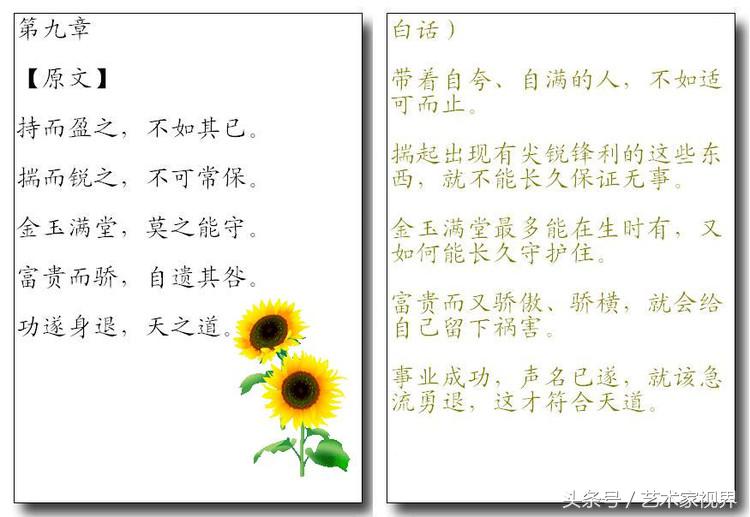 第九章
【原文】
持而盈之，不如其已。
揣而锐之，不可常保。
金玉满堂，莫之能守。
富贵而骄，自遗其咎。
功遂身退，天之道。
白话）
带着自夸、自满的人，不如适
可而止。
揣起出现有尖锐锋利的这些东
西，就不能长久保证无事。
金玉满堂最多能在生时有，又
如何能长久守护住。
富贵而又骄傲、骄横，就会给
自己留下祸害。
事业成功，声名已遂，就该急
流勇退，这才符合天道。
头条号／艺术家视界